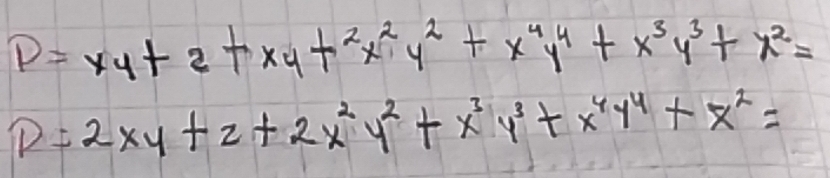 P = xy + z + xy + ²x²y² + x⁴y⁴ + x³y³ + x² =
P = 2xy + z + 2x²y² + x³y³ + x⁴y⁴ + x² =